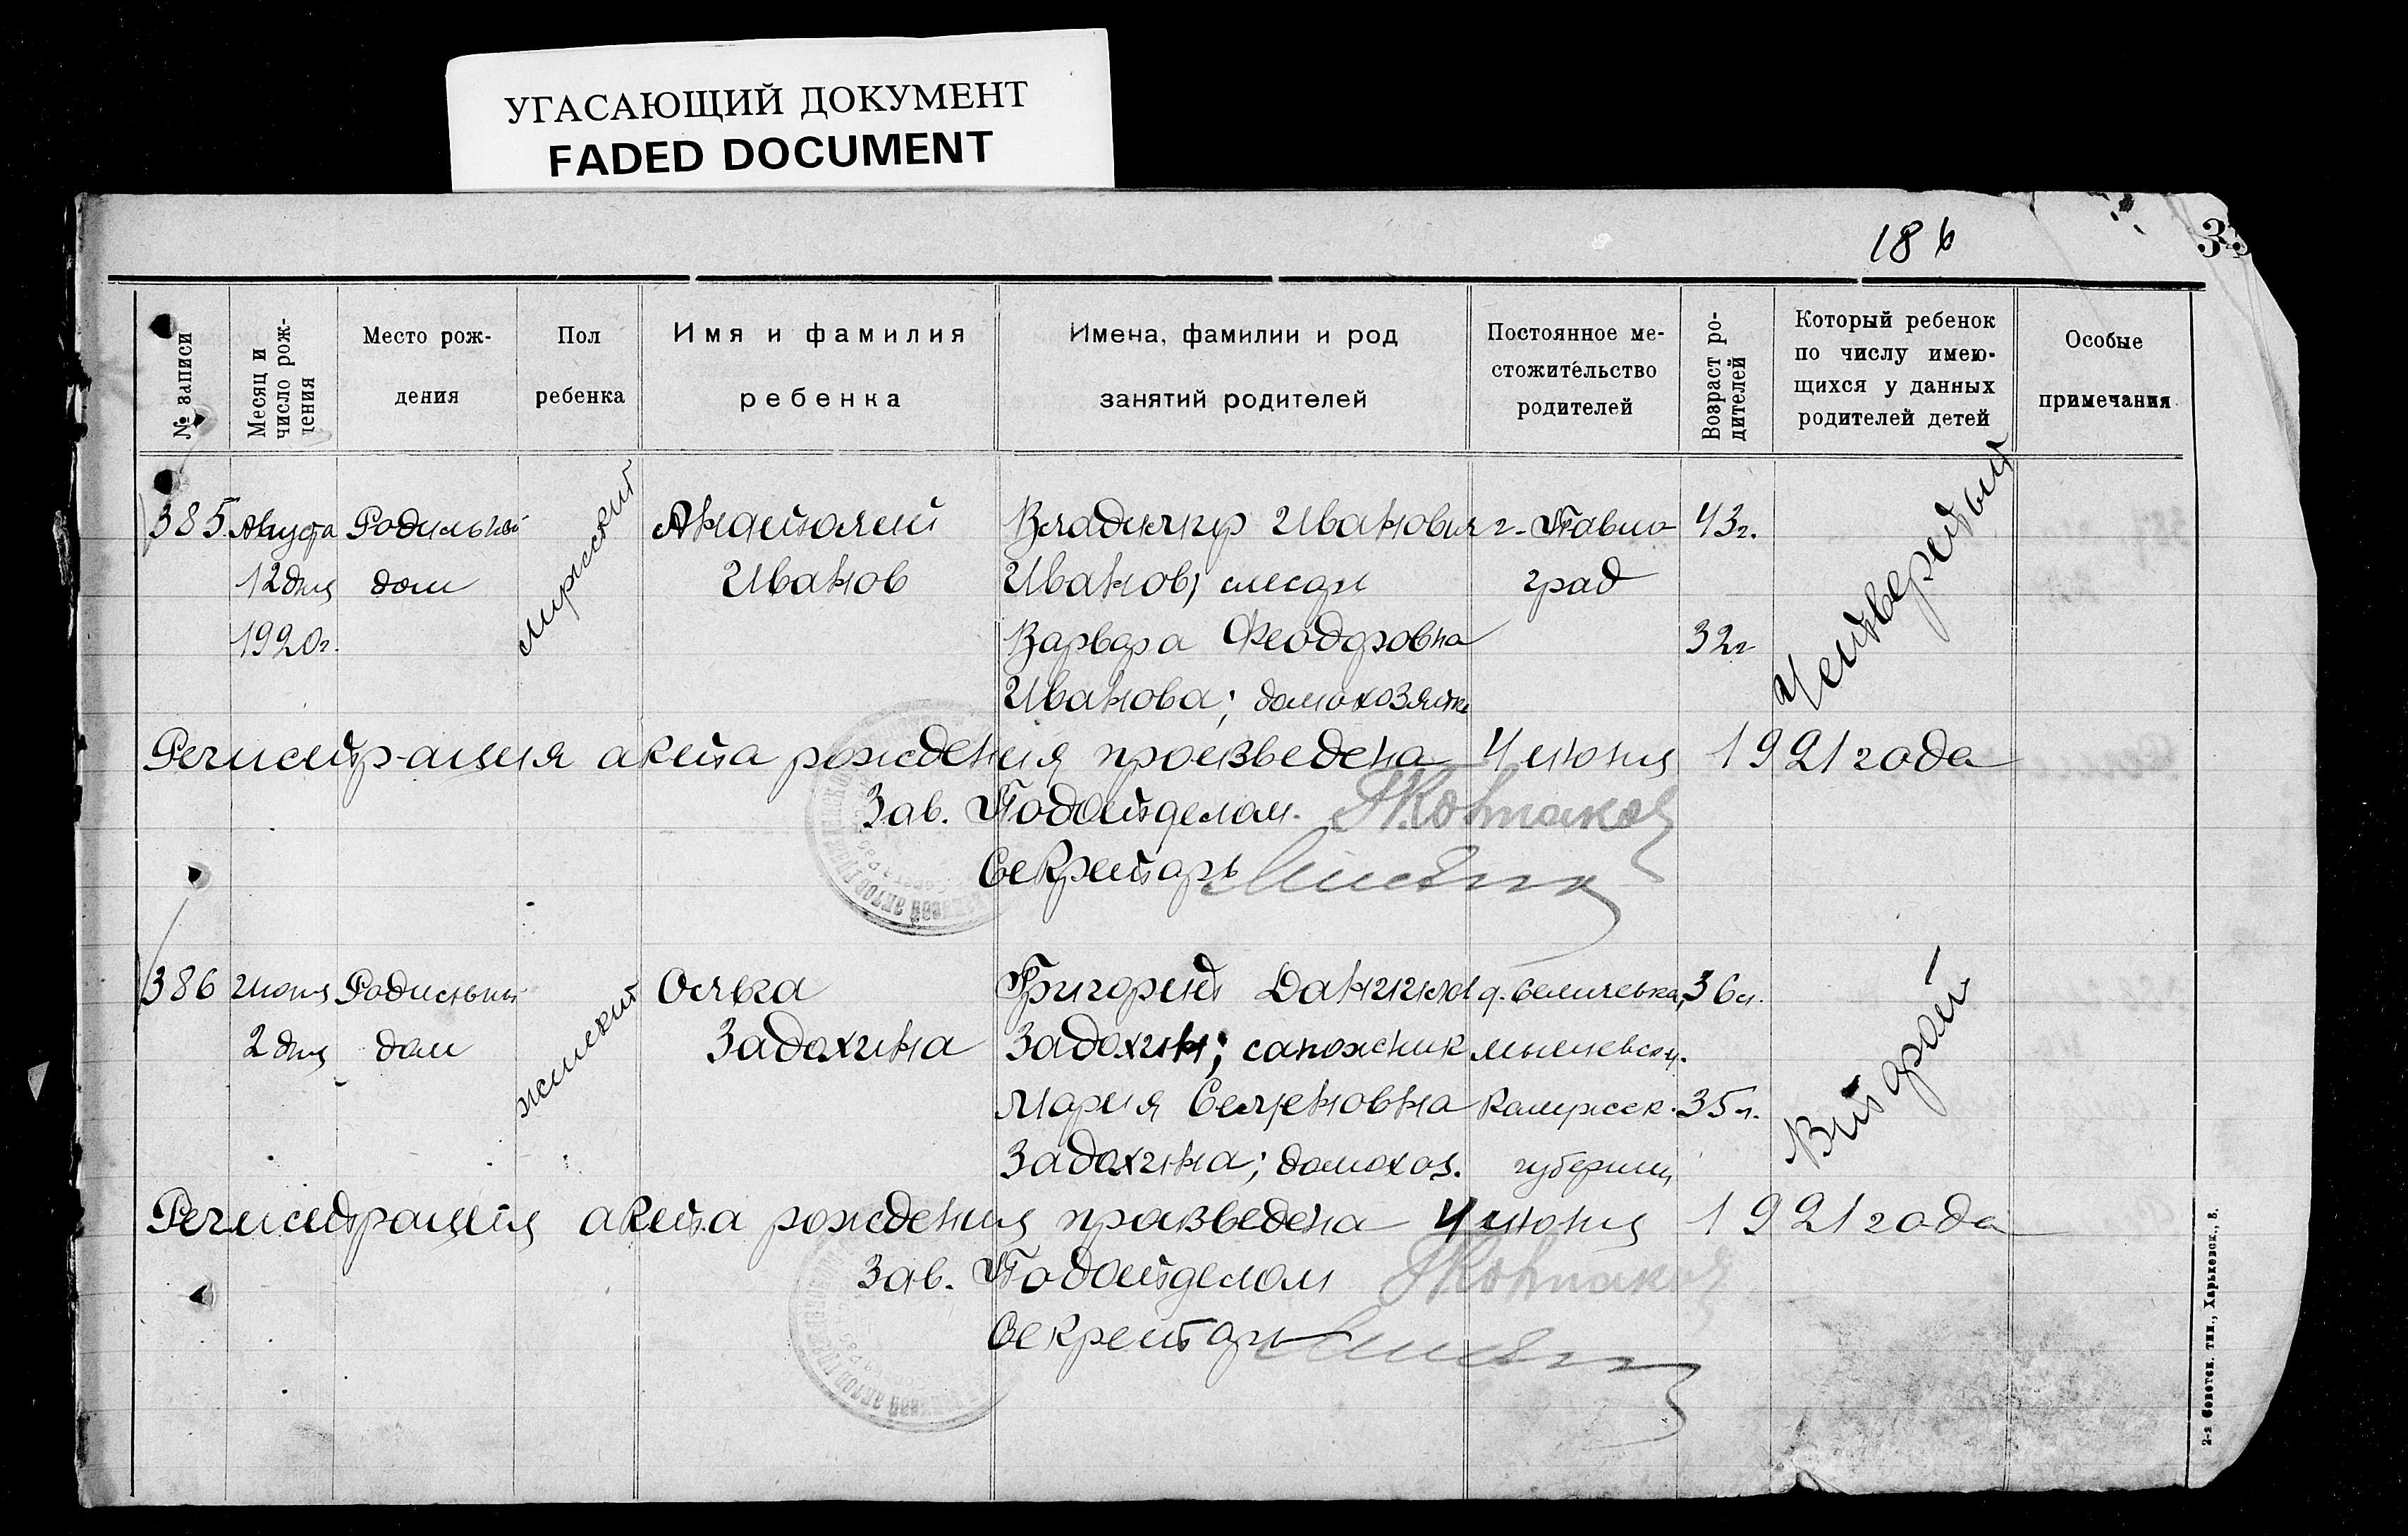 УГАСАЮЩИЙ ДОКУМЕНТ
FADED DOCUMENT
186
№ записи
Месяц и
число рож-
дения
Место рож-
дения
Пол
ребенка
Имя и фамилия
ребенка
Имена, фамилии и род
занятий родителей
Постоянное ме-
стожительство
родителей
Возраст ро-
дителей
Который ребенок
по числу имею-
щихся у данных
родителей детей
Особые
примечания
385 Августа Родильный мужский Анатолий Владимир Иванович г. Павло- 43г. Четвертый
12 дня дом Иванов Иванов, слесарь град
1920г. Варвара Феодоровна 32г
Иванова; домохозяйка
Регистрация акта рождения произведена 4 июня 1921 года
Зав. Подотделом.
Секретарь
386 Июня Родильный женский Ольга Григорий Данилов д. 36л. Второй
2 дня дом Задохина Задохин; сапожник
Мария Семеновна Калужск. 35л.
Задохина; домохоз. губернии
Регистрация акта рождения произведена 4 июня 1921 года
Зав. Подотделом
Секретарь
2-я Советск. тип., Харьковск., 5.